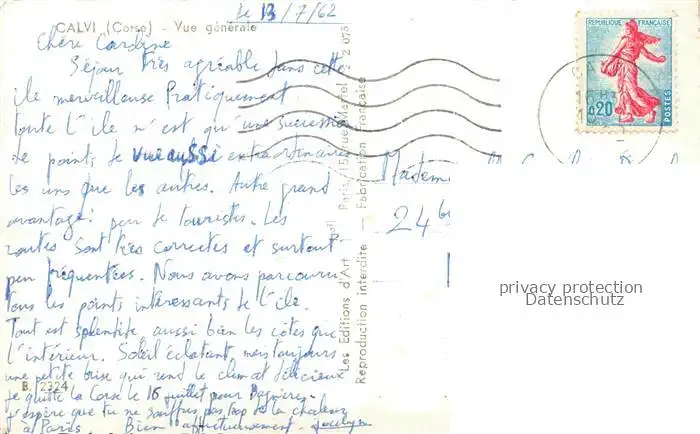 le 13/7/62
CALVI (Corse) - Vue générale
Chère Caroline
Séjour très agréable dans cette
île merveilleuse Pratiquement
toute l'île n'est qu'une succession
de points de vue aussi extraordinaires
les uns que les autres. Autre grand
avantage: peu de touristes. Les
routes sont très correctes et surtout
peu fréquentées. Nous avons parcouru
tous les points intéressants de l'île.
Tout est splendide aussi bien les côtes que
l'intérieur. Soleil éclatant, mais toujours
une petite brise qui rend le climat délicieux
B. 2324
Je quitte la Corse le 15 juillet pour Bagnères.
J'espère que tu ne souffres pas trop de la chaleur
à Paris. Bien affectueusement. Jocelyne
Les Editions d'Art
Paris, 15, rue Martel
Reproduction interdite - Fabrication française
REPUBLIQUE FRANÇAISE
0,20
POSTES
Madem
24
privacy protection
Datenschutz